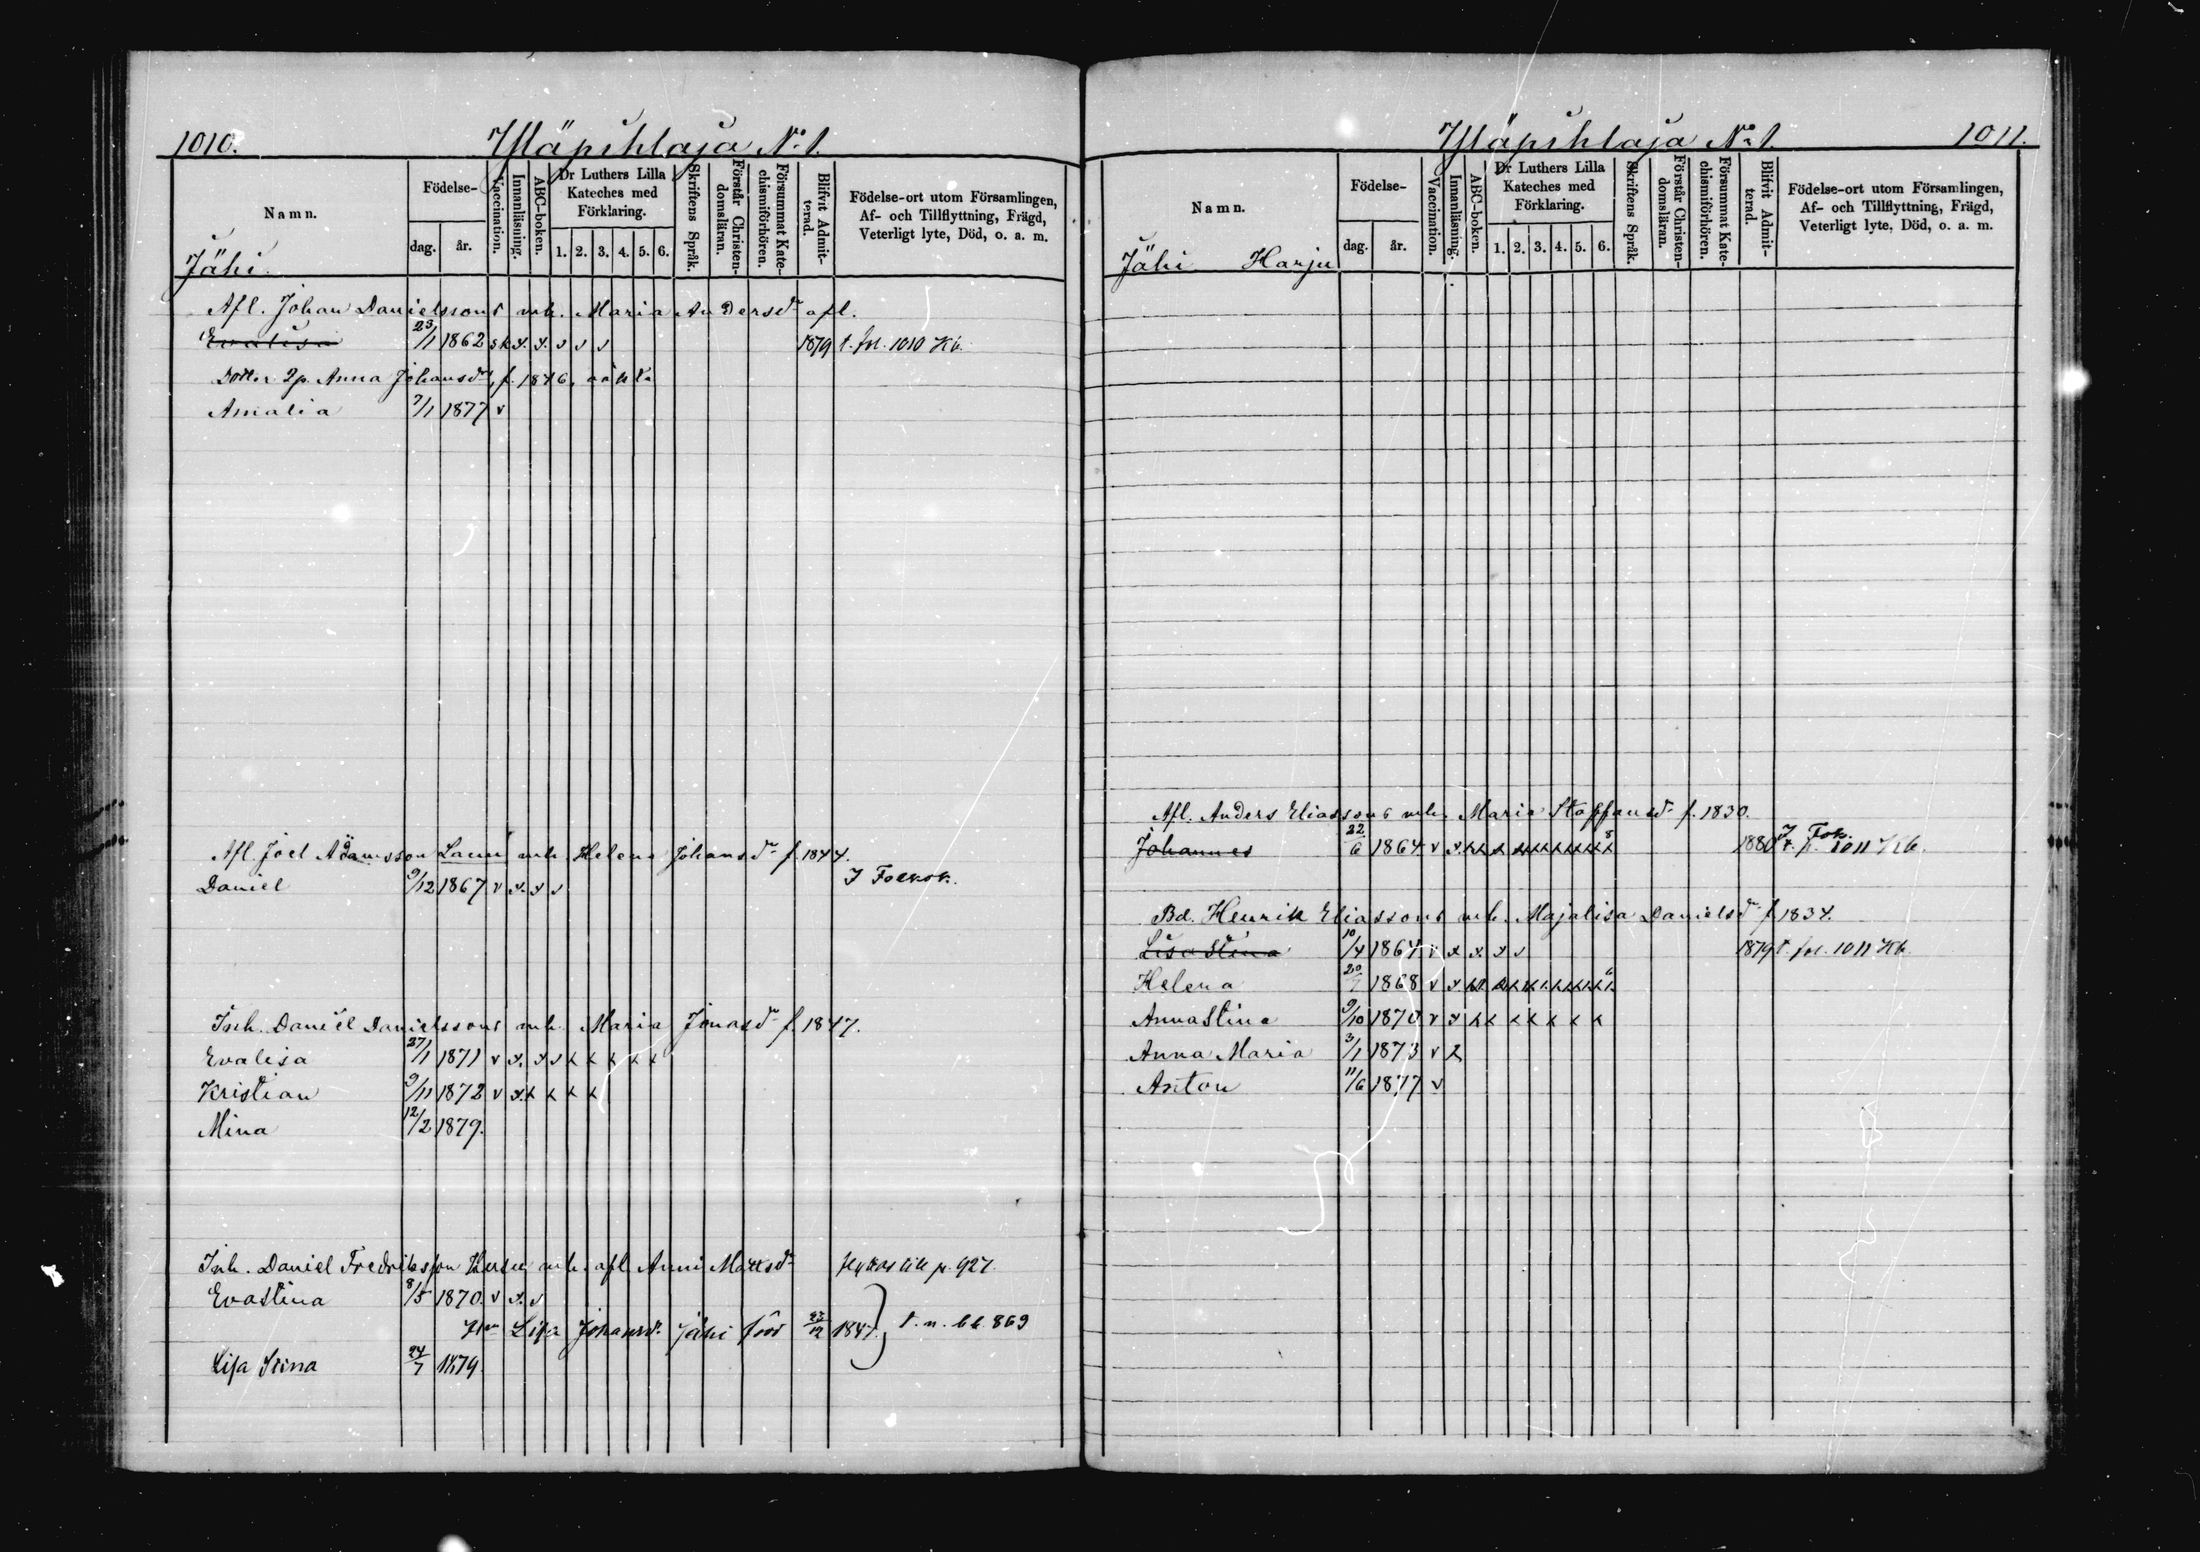 1010.
Yläpihlaja No 1.
Namn.
Födelse-
dag.
år.
Vaccination.
Innanläsning.
ABC-boken.
Dr Luthers Lilla
Kateches med
Förklaring.
1. 2. 3. 4. 5. 6.
Skriftens Språk.
Förstår Christen-
domsläran.
Försummat Kate-
chismiförhören.
Blifvit Admit-
terad.
Födelse-ort utom Församlingen,
Af- och Tillflyttning, Frägd,
Veterligt lyte, Död, o. a. m.
Jähi.
Afl. Johan Danielssons mh. Maria Andersdr afl.
Evalisa 23/1 1862 1879 t. fol. 1010 Kb.
Dotter Ip. Anna Johansdr, f. 1846, oäkta
Amalia 7/1 1877 v
Afl. Joel Adamsson mh. Helena Johansdr f. 1844.
Daniel 9/12 1867 v x x v
Inh. Daniel Danielssons mh. Maria Jonasdr f. 1847.
Evalisa 27/1 1871 v x x v x x x x x
Kristian 9/11 1872 v x x x x x
Mina 12/2 1879.
Inh. Daniel Fredriksson mh. afl Anni Mattsdr p. 927.
Evastina 8/5 1870. v x v
Lisa Johansdr Jähi född 1847. 869
Lisa Stina 24/7 1879.
Yläpihlaja No 1.
1011.
Namn.
Födelse-
dag.
år.
Vaccination.
Innanläsning.
ABC-boken.
Dr Luthers Lilla
Kateches med
Förklaring.
1. 2. 3. 4. 5. 6.
Skriftens Språk.
Förstår Christen-
domsläran.
Försummat Kate-
chismiförhören.
Blifvit Admit-
terad.
Födelse-ort utom Församlingen,
Af- och Tillflyttning, Frägd,
Veterligt lyte, Död, o. a. m.
Jähi Harju
Afl. Anders Eliassons mh. Maria Staffansdr f. 1830.
Johannes 22/6 1864 v 1880 1011 Kb.
Bd. Henrik Eliassons mh. Majalisa Danielsdr f. 1834.
Lisastina 10/4 1864 v x x x v 1879 t. fol. 1011 Kb.
Helena 20/7 1868 v
Annastina 9/10 1870 v x x x x x x x x
Anna Maria 3/1 1873 v x
Anton 11/6 1877 v